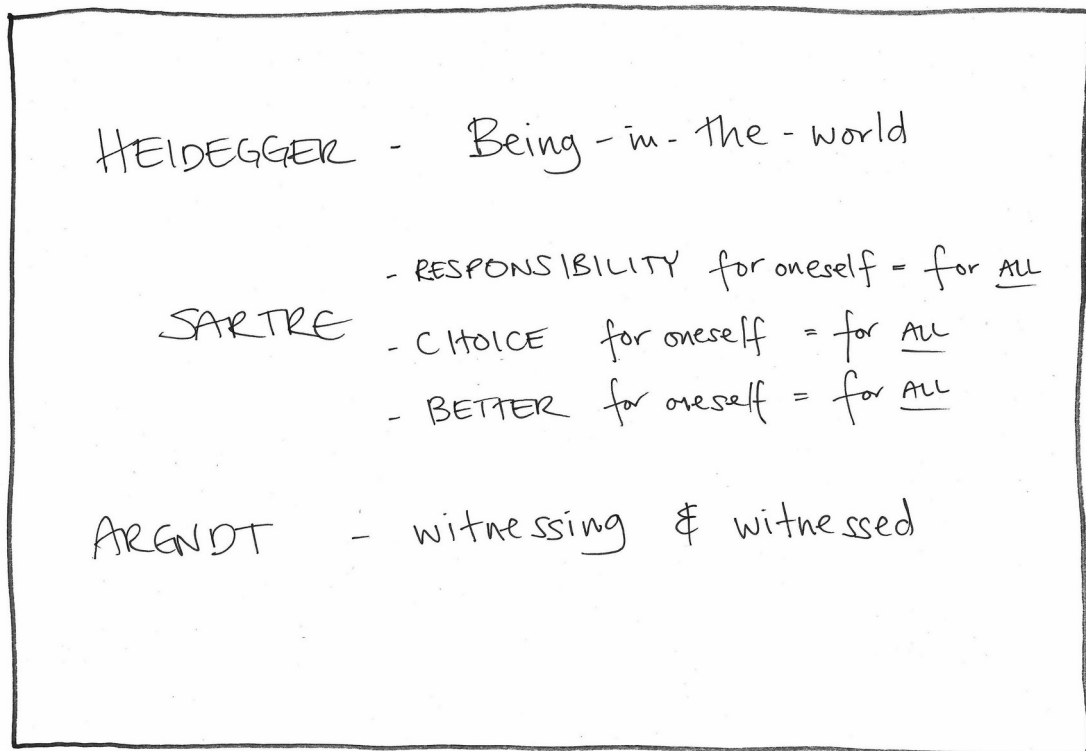 HEIDEGGER - Being-in-the-world
- RESPONSIBILITY for oneself = for ALL
SARTRE
- CHOICE for oneself = for ALL
- BETTER for oneself = for ALL
ARENDT - witnessing & witnessed